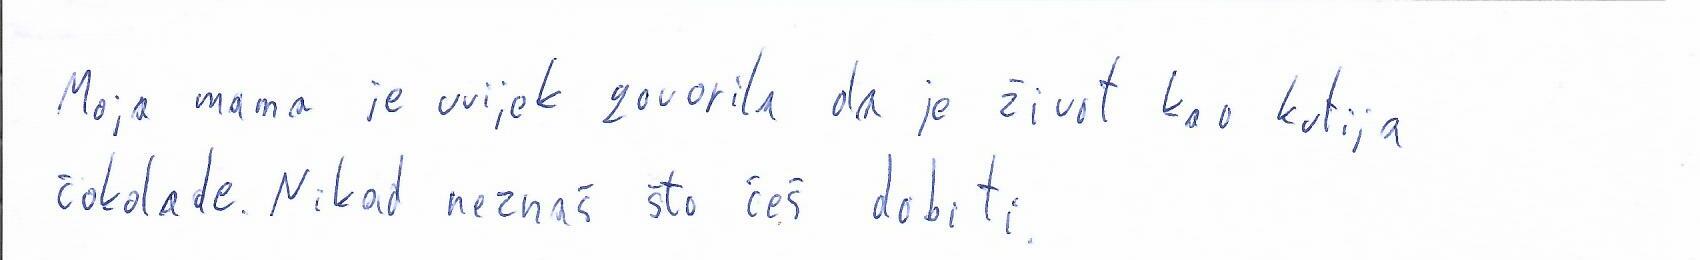 Moja mama je uvijek govorila da je život kao kutija
čokolade. Nikad neznaš što češ dobiti.